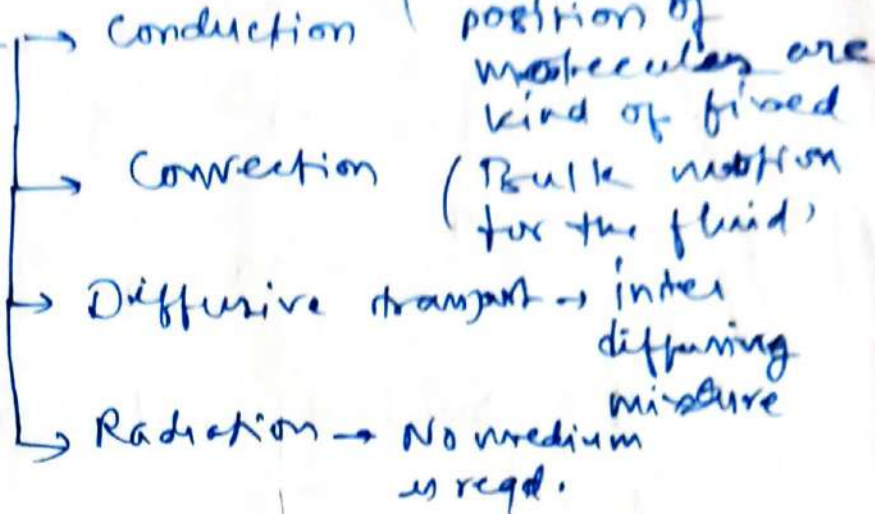 → Conduction ( position of
molecules are
kind of fixed
→ Convection ( Bulk motion
for the fluid)
→ Diffusive transport → inter
diffusing
mixture
→ Radiation → No medium
is reqd.